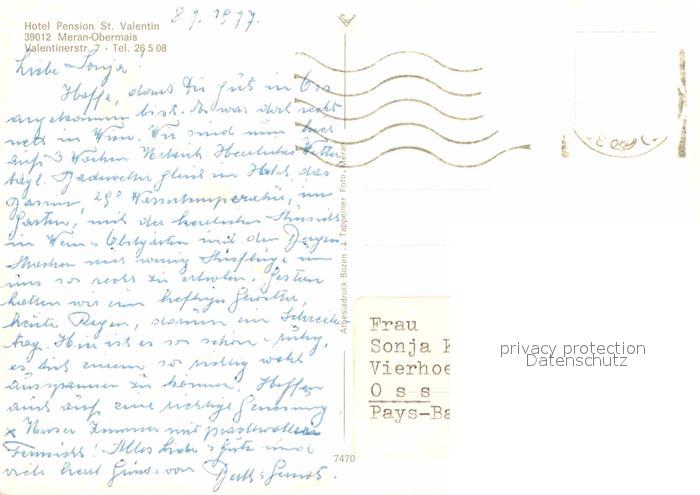 Hotel Pension St. Valentin
39012 Meran-Obermais
Valentinerstr. 7 - Tel. 26 5 08
8.7. 1977.
Liebe Sonja!
Hoffe, dass Du gut in Oss
angekommen bist. Es war doch recht
nett in Wien. Wir sind nun hier
auf 3 Wochen Wetter
tägl. Badewetter gleich im Hotel, das
Bassin, 29° Wassertemperatur, im
Garten, mit der herrlichen Aussicht
in Wein- Obstgärten und den Bergen
wenig Ausflüge um
uns so recht zu erholen. Gestern
hatten wir ein heftiges Gewitter,
heute Regen, darum ein Schreibe-
tag. Hier ist es so schön - ruhig,
es tut einem so richtig wohl
ausspannen zu können. Hoffen
auch auf eine richtige Genesung
x Unser Zimmer mit prachtvoller
Fernsicht! Alles Liebe & Gute und
viele herzl. Grüsse von
Athesiadruck Bozen J. Tappeiner Foto, Meran
7470
Frau
Sonja
Vierhoe
O s s
Pays-Ba
privacy protection
Datenschutz